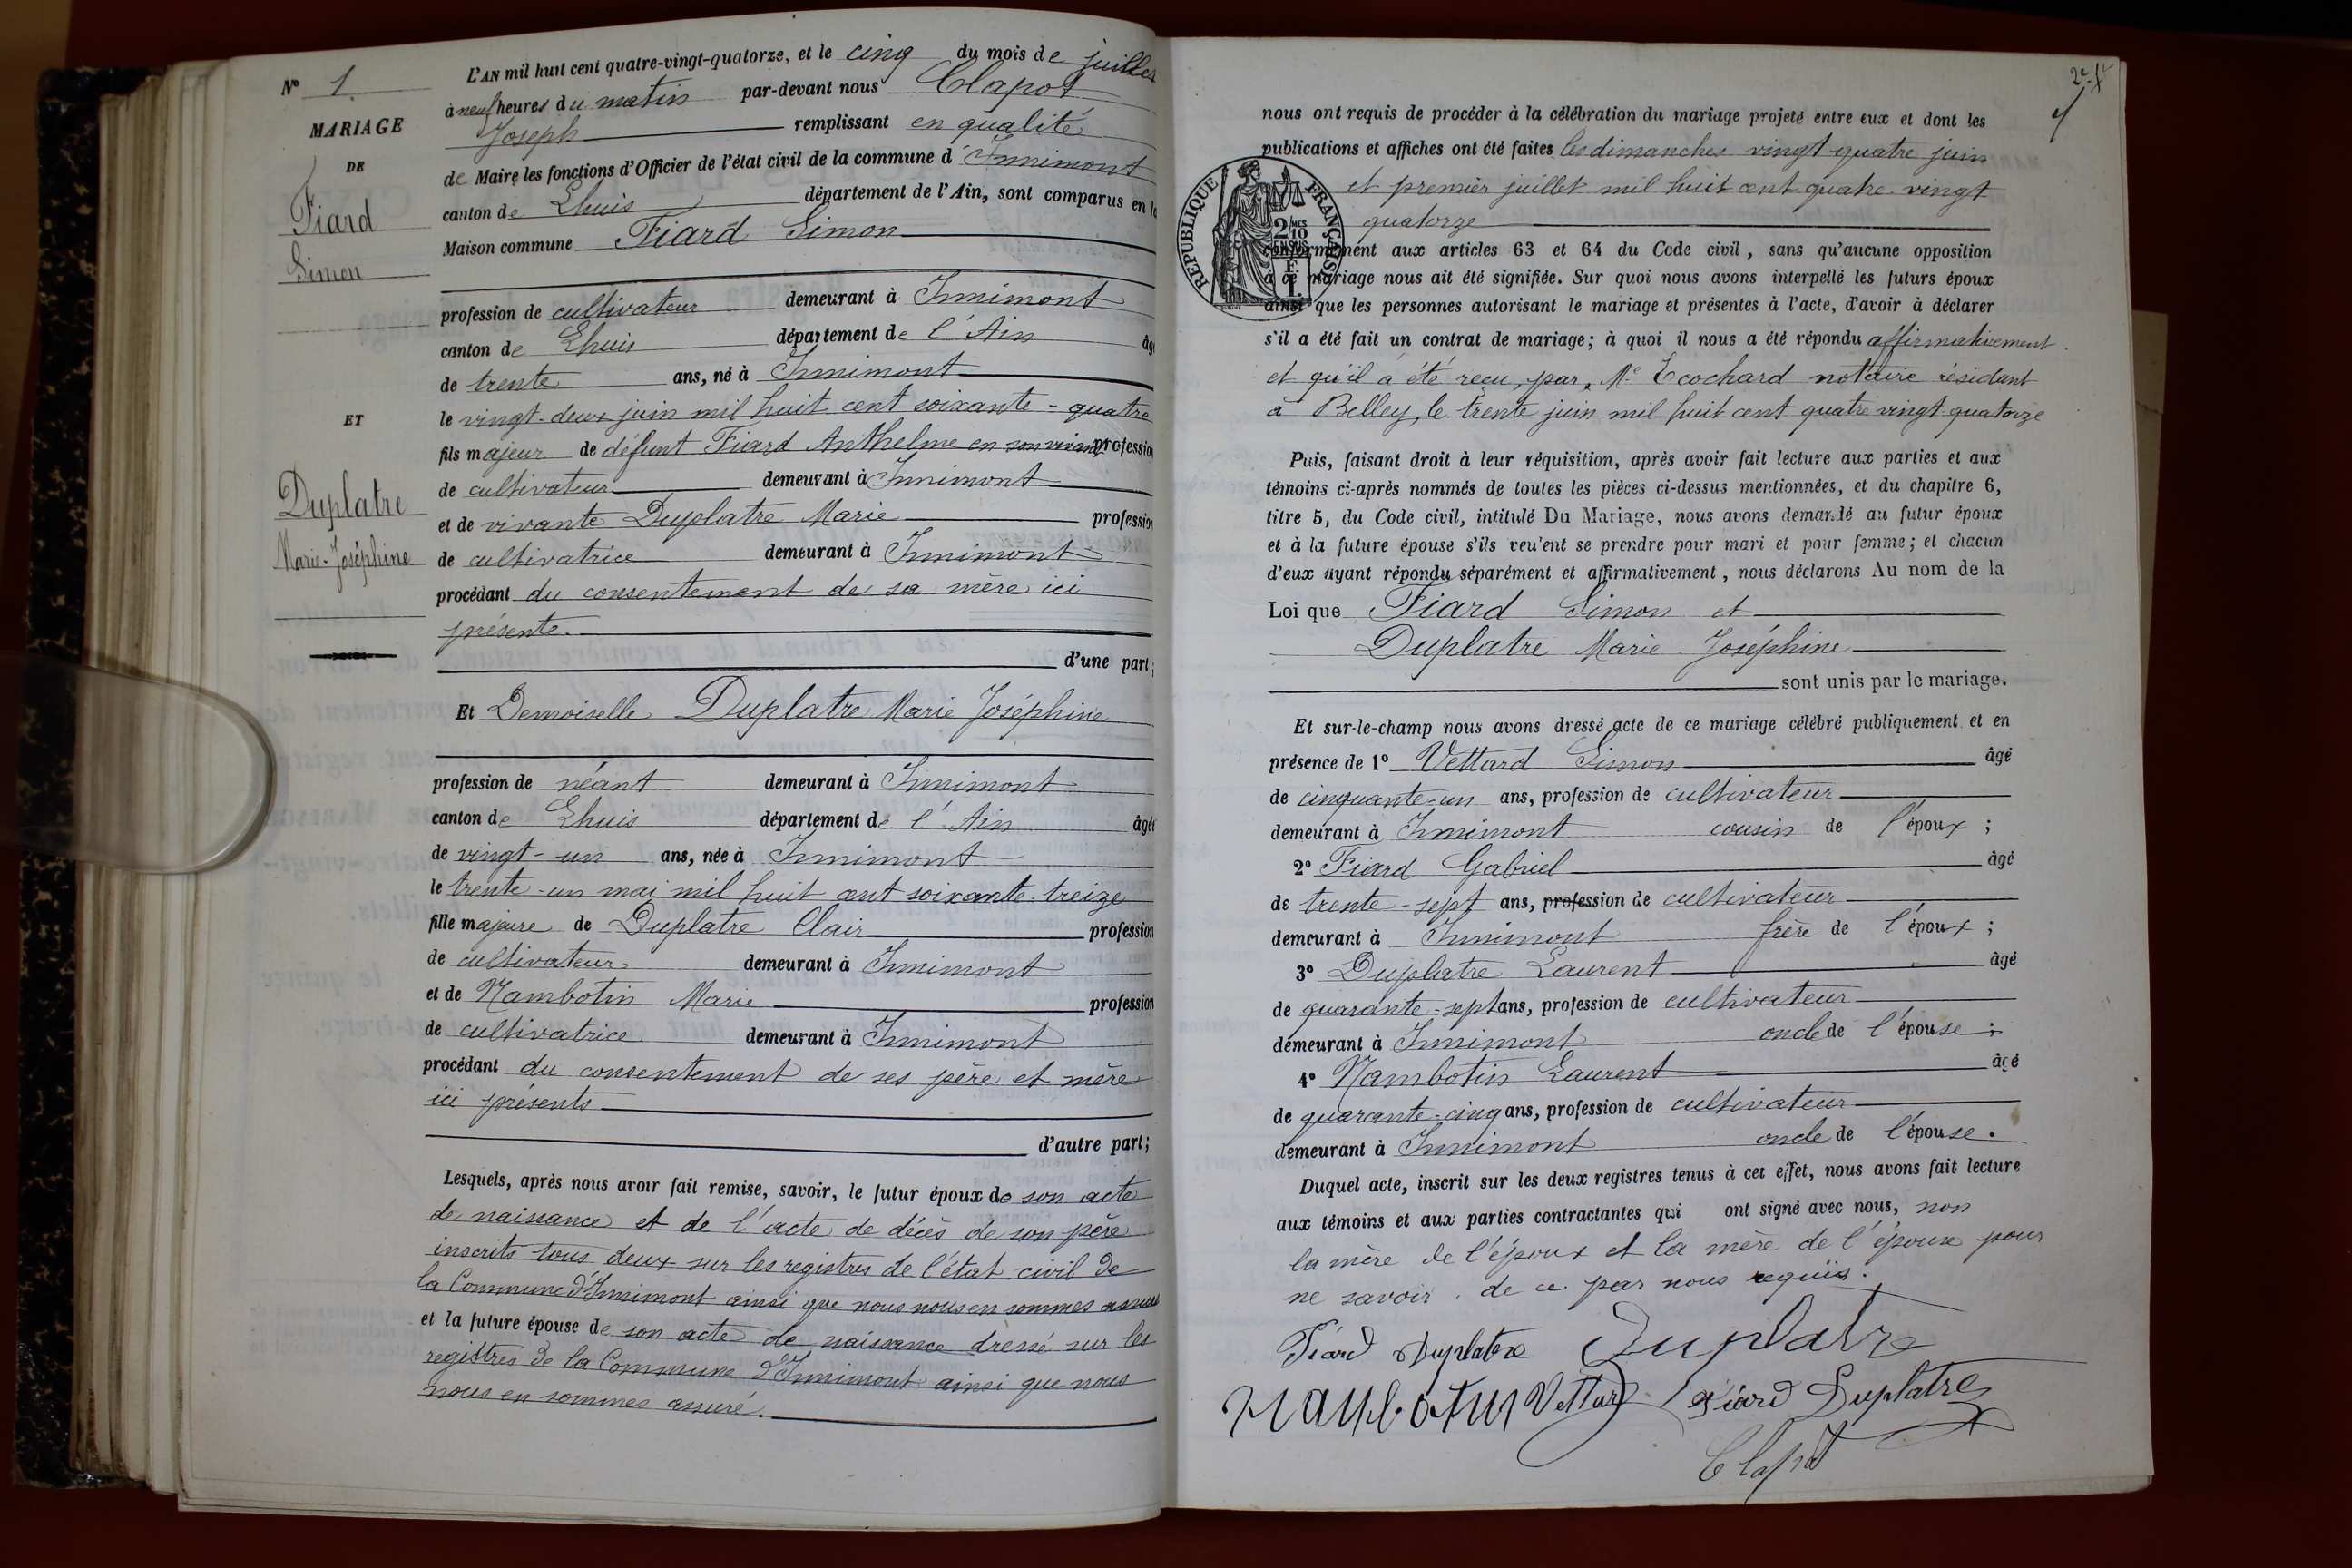 N° 1.
MARIAGE
DE
Fiard
Simon
ET
Duplatre
Marie-Joséphine
L'AN mil huit cent quatre-vingt-quatorze, et le cinq du mois de juillet
à neuf heures du matin par-devant nous Clapot
Joseph remplissant en qualité
de Maire les fonctions d'Officier de l'état civil de la commune d'Innimont
canton de Lhuis département de l'Ain, sont comparus en la
Maison commune Fiard Simon
profession de cultivateur demeurant à Innimont
canton de Lhuis département de l'Ain âgé
de trente ans, né à Innimont
le vingt-deux juin mil huit cent soixante-quatre
fils majeur de défunt Fiard Anthelme en son vivant profession
de cultivateur demeurant à Innimont
et de vivante Duplatre Marie profession
de cultivatrice demeurant à Innimont
procédant du consentement de sa mère ici
présente.
d'une part;
Et Demoiselle Duplatre Marie Joséphine
profession de néant demeurant à Innimont
canton de Lhuis département de l'Ain âgée
de vingt-un ans, née à Innimont
le trente-un mai mil huit cent soixante-treize
fille majeure de Duplatre Clair profession
de cultivateur demeurant à Innimont
et de Nambotin Marie profession
de cultivatrice demeurant à Innimont
procédant du consentement de ses père et mère
ici présents
d'autre part;
Lesquels, après nous avoir fait remise, savoir, le futur époux de son acte
de naissance et de l'acte de décès de son père
inscrits tous deux sur les registres de l'état-civil de
la Commune d'Innimont ainsi que nous nous en sommes assuré
et la future épouse de son acte de naissance dressé sur les
registres de la Commune d'Innimont ainsi que nous
nous en sommes assuré.
nous ont requis de procéder à la célébration du mariage projeté entre eux et dont les
publications et affiches ont été faites les dimanches vingt-quatre juin
et premier juillet mil huit cent quatre-vingt
quatorze
REPUBLIQUE FRANÇAISE
2/10 MES EN SUS
1 F.
conformément aux articles 63 et 64 du Code civil, sans qu'aucune opposition
à ce mariage nous ait été signifiée. Sur quoi nous avons interpellé les futurs époux
ainsi que les personnes autorisant le mariage et présentes à l'acte, d'avoir à déclarer
s'il a été fait un contrat de mariage; à quoi il nous a été répondu affirmativement
et qu'il a été reçu par Me Ecochard notaire résidant
à Belley, le trente juin mil huit cent quatre vingt-quatorze
Puis, faisant droit à leur réquisition, après avoir fait lecture aux parties et aux
témoins ci-après nommés de toutes les pièces ci-dessus mentionnées, et du chapitre 6,
titre 5, du Code civil, intitulé Du Mariage, nous avons demandé au futur époux
et à la future épouse s'ils veulent se prendre pour mari et pour femme; et chacun
d'eux ayant répondu séparément et affirmativement, nous déclarons Au nom de la
Loi que Fiard Simon et
Duplatre Marie-Joséphine
sont unis par le mariage.
Et sur-le-champ nous avons dressé acte de ce mariage célébré publiquement et en
présence de 1° Vettard Simon âgé
de cinquante-un ans, profession de cultivateur
demeurant à Innimont cousin de l'époux ;
2° Fiard Gabriel âgé
de trente-sept ans, profession de cultivateur
demeurant à Innimont frère de l'époux ;
3° Duplatre Laurent âgé
de quarante-sept ans, profession de cultivateur
demeurant à Innimont oncle de l'épouse ;
4° Nambotin Laurent âgé
de quarante-cinq ans, profession de cultivateur
demeurant à Innimont oncle de l'épouse.
Duquel acte, inscrit sur les deux registres tenus à cet effet, nous avons fait lecture
aux témoins et aux parties contractantes qui ont signé avec nous, non
la mère de l'époux et la mère de l'épouse pour
ne savoir, de ce par nous requis.
Fiard Duplatre Duplatre
Nambotin Vettard Fiard Duplatre
Clapot